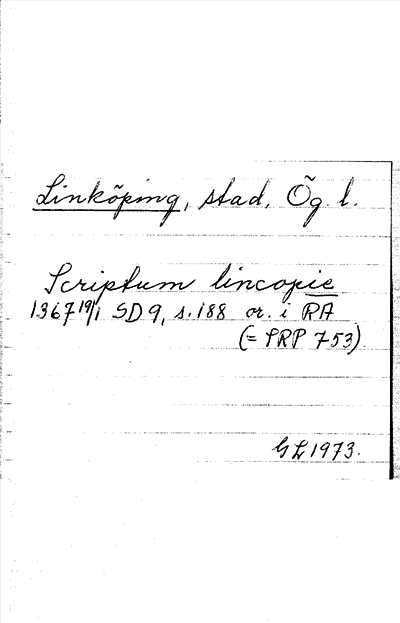 Linköping, stad, Ög l.
Scriptum lincopie
1367 19/1 SD 9, s. 188 or. i RA
(= PRP 753)
GL 1973.